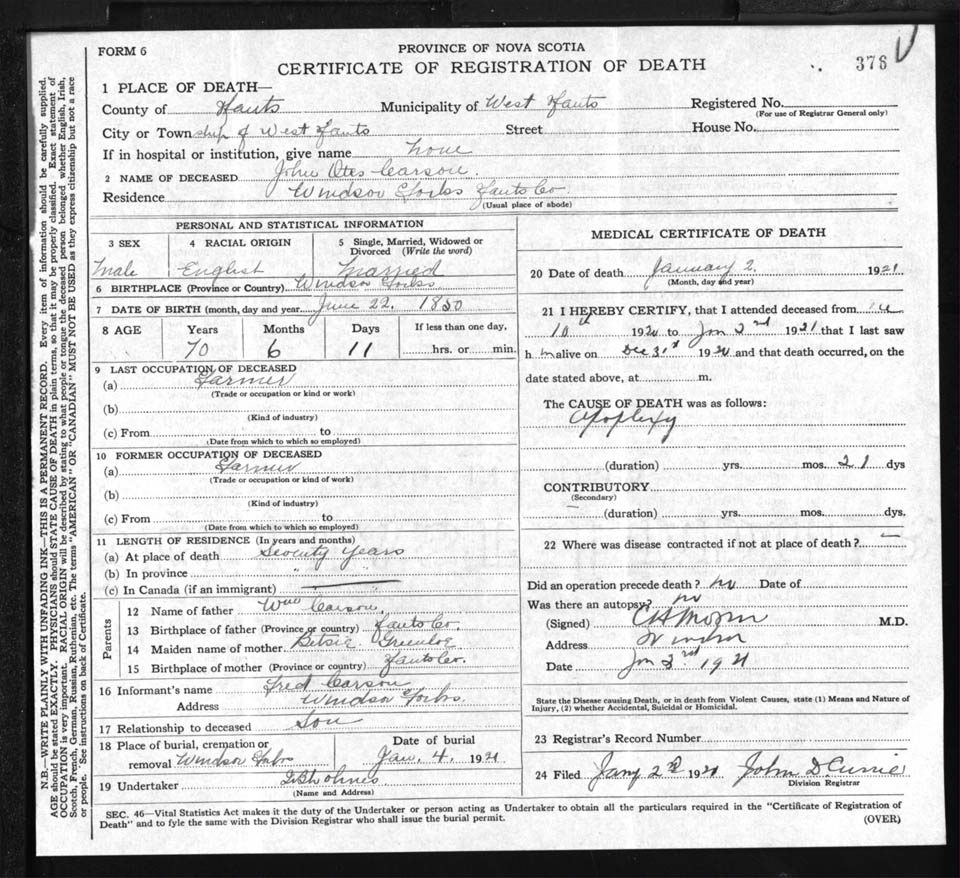 FORM 6
PROVINCE OF NOVA SCOTIA
CERTIFICATE OF REGISTRATION OF DEATH
376
1 PLACE OF DEATH—
County of Hants Municipality of West Hants Registered No.
(For use of Registrar General only)
City or Township of West Hants Street House No.
If in hospital or institution, give name none
2 NAME OF DECEASED John Otes Carson.
Residence Windsor Forks Hants Co.
(Usual place of abode)
PERSONAL AND STATISTICAL INFORMATION
3 SEX 4 RACIAL ORIGIN 5 Single, Married, Widowed or Divorced (Write the word)
Male English Married
6 BIRTHPLACE (Province or Country) Windsor Forks
7 DATE OF BIRTH (month, day and year) June 22, 1850
8 AGE Years Months Days If less than one day,
70 6 11 hrs. or min.
9 LAST OCCUPATION OF DECEASED
(a) Farmer
(Trade or occupation or kind or work)
(b)
(Kind of industry)
(c) From to
(Date from which to which so employed)
10 FORMER OCCUPATION OF DECEASED
(a) Farmer
(Trade or occupation or kind of work)
(b)
(Kind of industry)
(c) From to
(Date from which to which so employed)
11 LENGTH OF RESIDENCE (In years and months)
(a) At place of death Seventy years
(b) In province " "
(c) In Canada (if an immigrant)
Parents
12 Name of father Wm Carson
13 Birthplace of father (Province or country) Hants Co.
14 Maiden name of mother Betsie
15 Birthplace of mother (Province or country) Hants Co.
16 Informant's name Fred Carson
Address Windsor Forks.
17 Relationship to deceased Son
18 Place of burial, cremation or Date of burial
removal Windsor Forks Jan. 4, 1921
19 Undertaker
(Name and Address)
MEDICAL CERTIFICATE OF DEATH
20 Date of death January 2, 1921
(Month, day and year)
21 I HEREBY CERTIFY, that I attended deceased from
10th 1920 to Jan 2nd 1921 that I last saw
h m alive on Dec 31st 1920 and that death occurred, on the
date stated above, at m.
The CAUSE OF DEATH was as follows:
Apoplexy
(duration) yrs. mos. 21 dys
CONTRIBUTORY
(Secondary)
(duration) yrs. mos. dys.
22 Where was disease contracted if not at place of death? —
Did an operation precede death? no Date of
Was there an autopsy? no
(Signed) M.D.
Address Windsor
Date 1921
State the Disease causing Death, or in death from Violent Causes, state (1) Means and Nature of
Injury, (2) whether Accidental, Suicidal or Homicidal.
23 Registrar's Record Number
24 Filed Jany 2nd 1921 John D. Currie
Division Registrar
SEC. 46—Vital Statistics Act makes it the duty of the Undertaker or person acting as Undertaker to obtain all the particulars required in the "Certificate of Registration of
Death" and to fyle the same with the Division Registrar who shall issue the burial permit.
(OVER)
N.B.—WRITE PLAINLY WITH UNFADING INK—THIS IS A PERMANENT RECORD. Every item of information should be carefully supplied.
AGE should be stated EXACTLY. PHYSICIANS should STATE CAUSE OF DEATH in plain terms, so that it may be properly classified. Exact statement of
OCCUPATION is very important. RACIAL ORIGIN will be described by stating to what people or tongue the deceased person belonged, whether English, Irish,
Scotch, French, German, Russian, Ruthenian, etc. The terms "AMERICAN" OR "CANADIAN" MUST NOT BE USED as they express citizenship but not a race
or people. See instructions on back of Certificate.